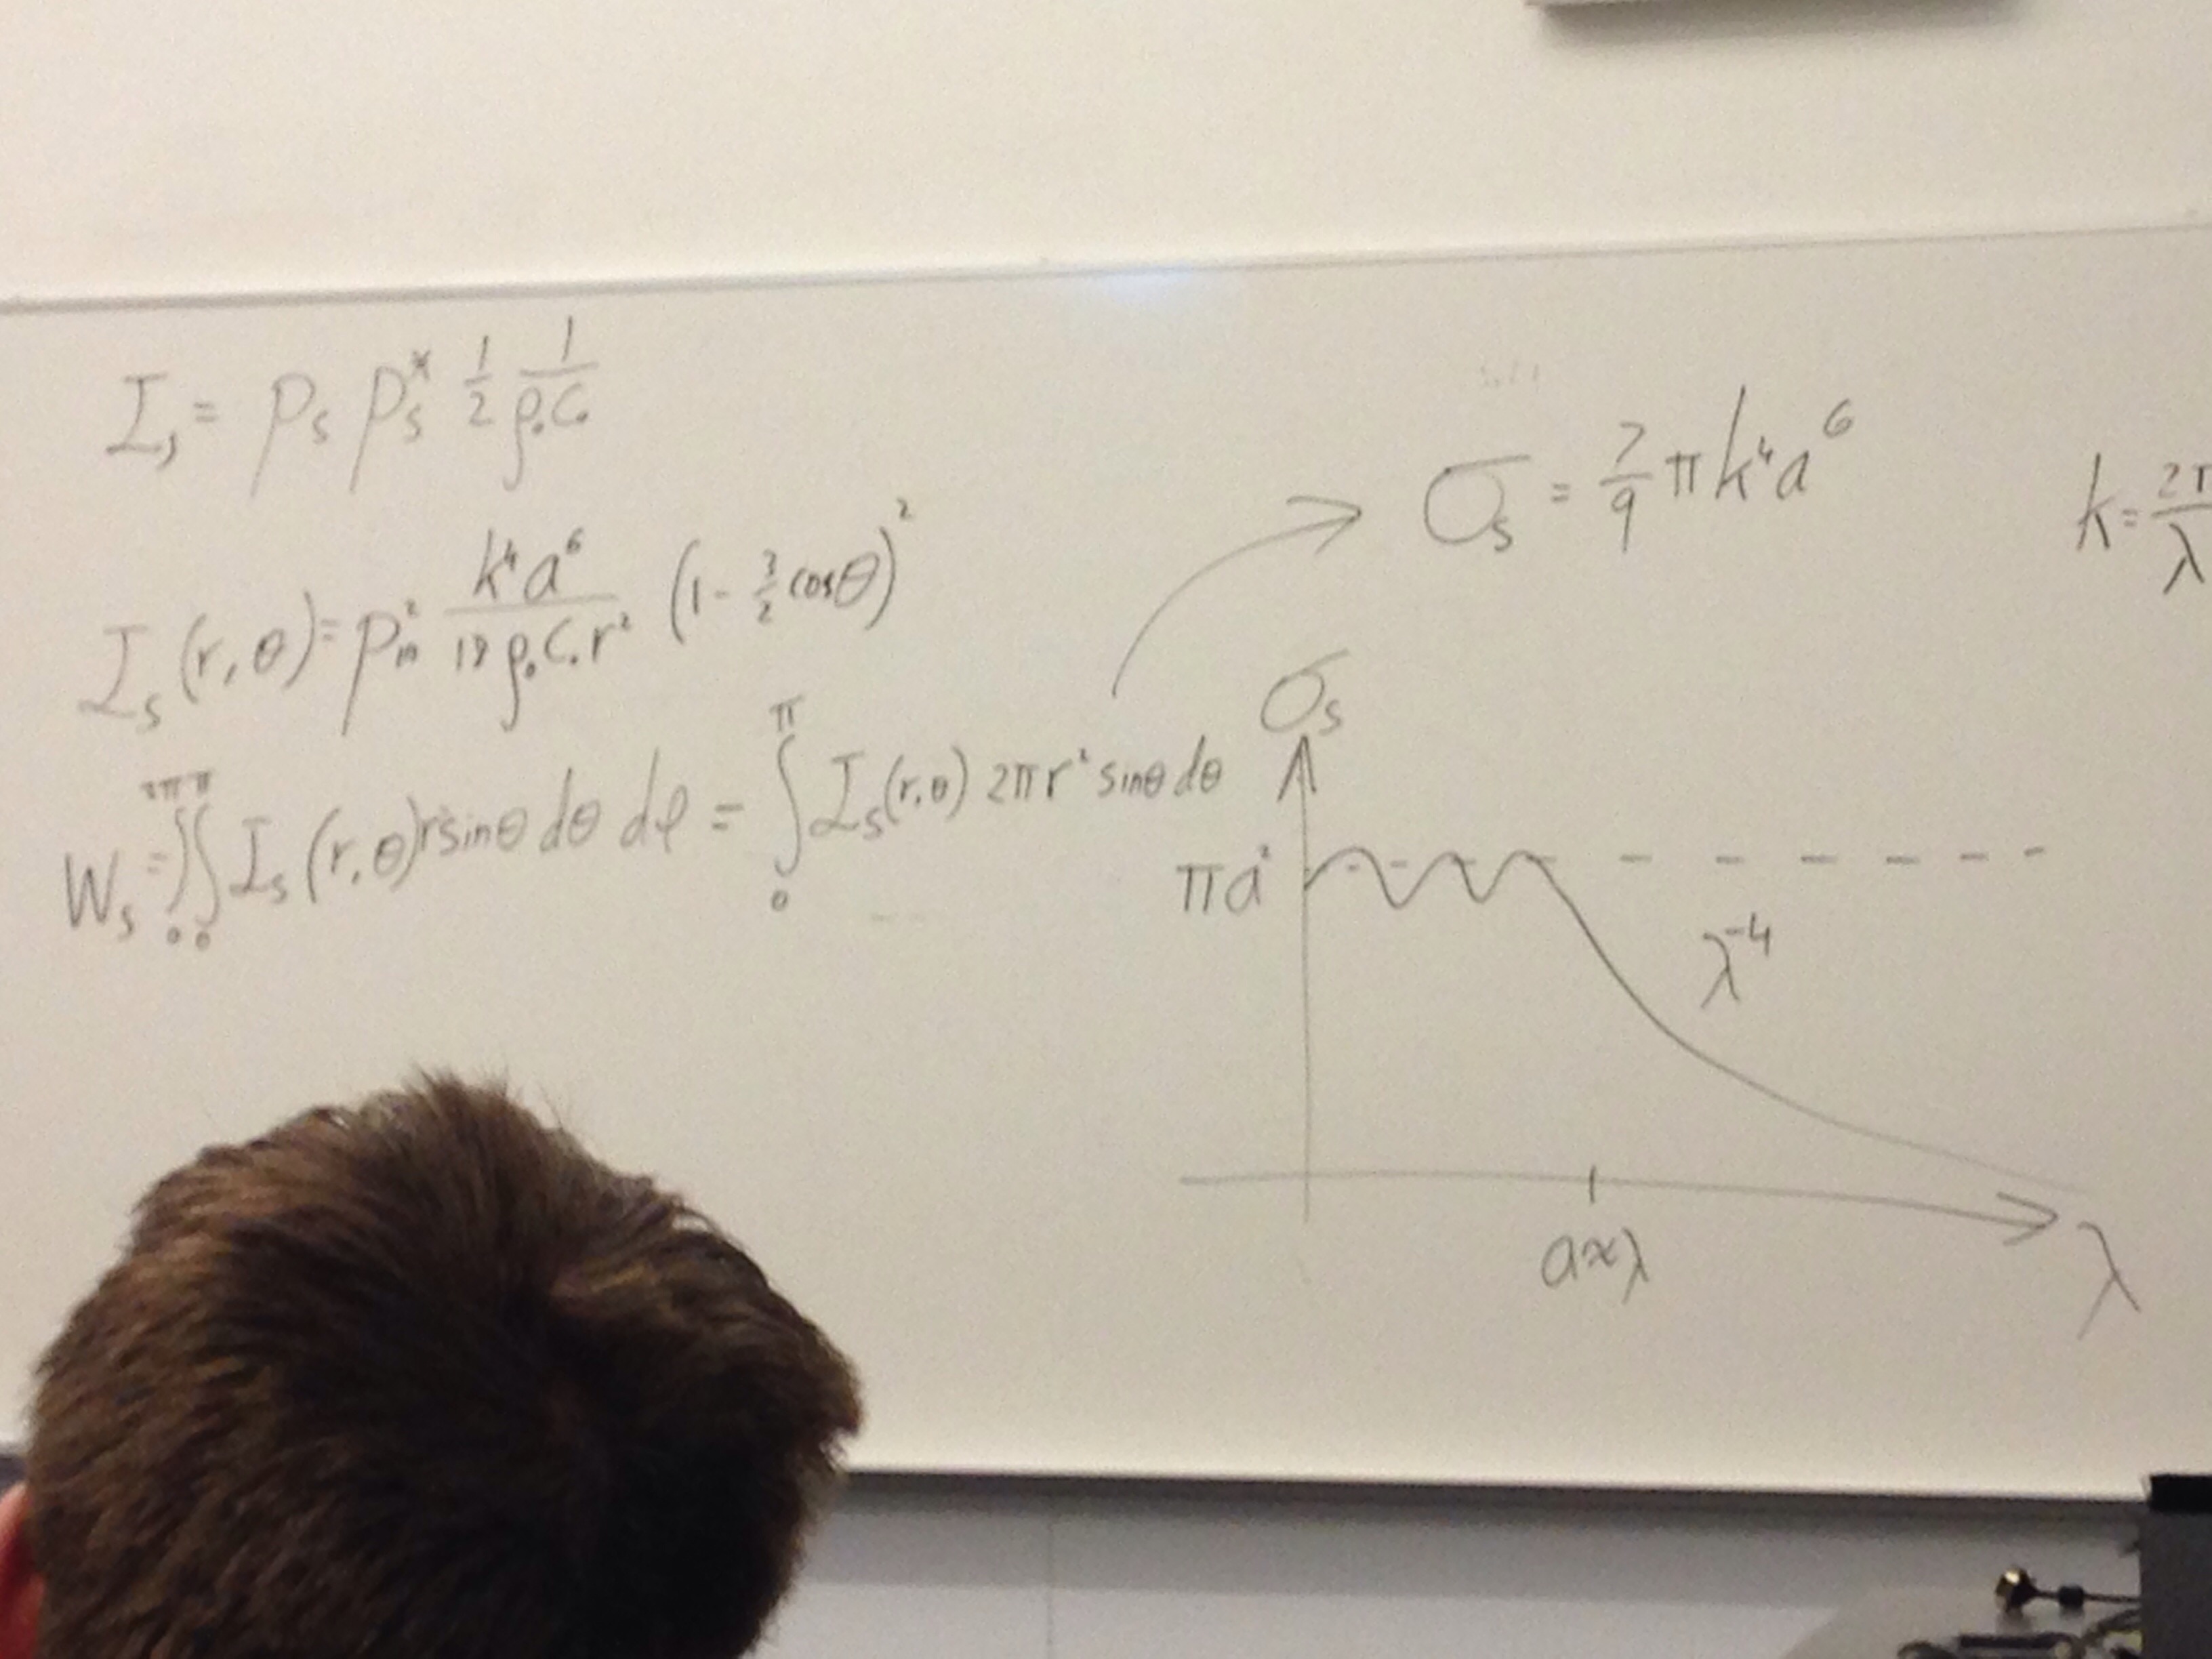 I_s = p_s p_s^* 1/2 1/(ρ₀C₀)
I_s(r,θ) = p_in² k⁴a⁶/(18ρ₀C₀r²) (1 - 3/2 cosθ)²
W_s = ∫₀^2π ∫₀^π I_s(r,θ) r² sinθ dθ dφ = ∫₀^π I_s(r,θ) 2πr² sinθ dθ
σ_s = 7/9 πk⁴a⁶
k = 2π/λ
σ_s
πa²
λ⁻⁴
a≈λ
λ